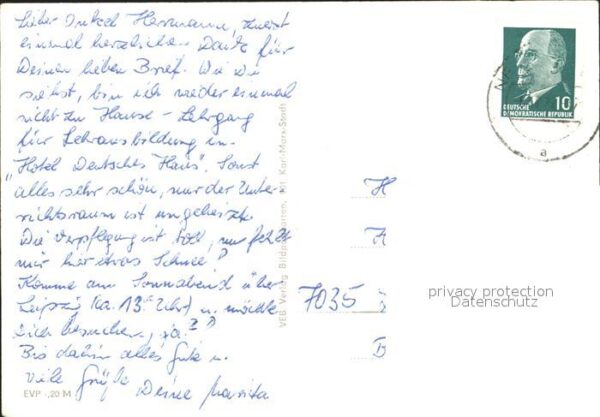 Lieber Onkel Hermann, zuerst
einmal herzlichen Dank für
Deinen lieben Brief. Wie Du
siehst, bin ich wieder einmal
nicht zu Hause - Lehrgang
für Lehrausbildung im
"Hotel Deutsches Haus". Sonst
alles sehr schön, nur der Unter-
richtsraum ist ungeheizt.
Die Verpflegung ist toll, nur fehlt
mir hier etwas Schnee?
Komme am Sonnabend über
Leipzig (ca. 13 Uhr) u. möchte
Dich besuchen, ja??
Bis dahin alles Gute u.
viele Grüße Deine Marita
EVP -,20 M
VEB Verlag Bild Karl-Marx-Stadt
DEUTSCHE
DEMOKRATISCHE REPUBLIK
10
a
H
A
7035
D
privacy protection
Datenschutz